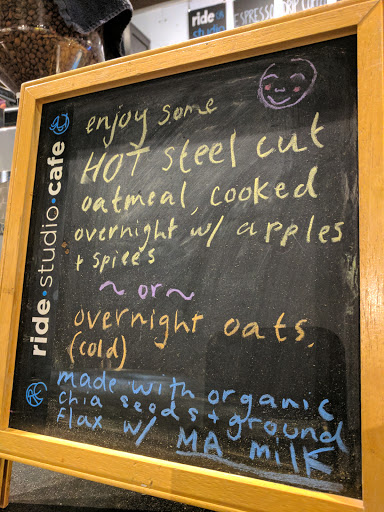 ride
studio
ESPRESSO
ride•studio•cafe
enjoy some
HOT steel cut
oatmeal, cooked
overnight w/ apples
+ spices
~ or ~
overnight oats.
(cold)
made with organic
chia seeds + ground
flax w/ MA milk